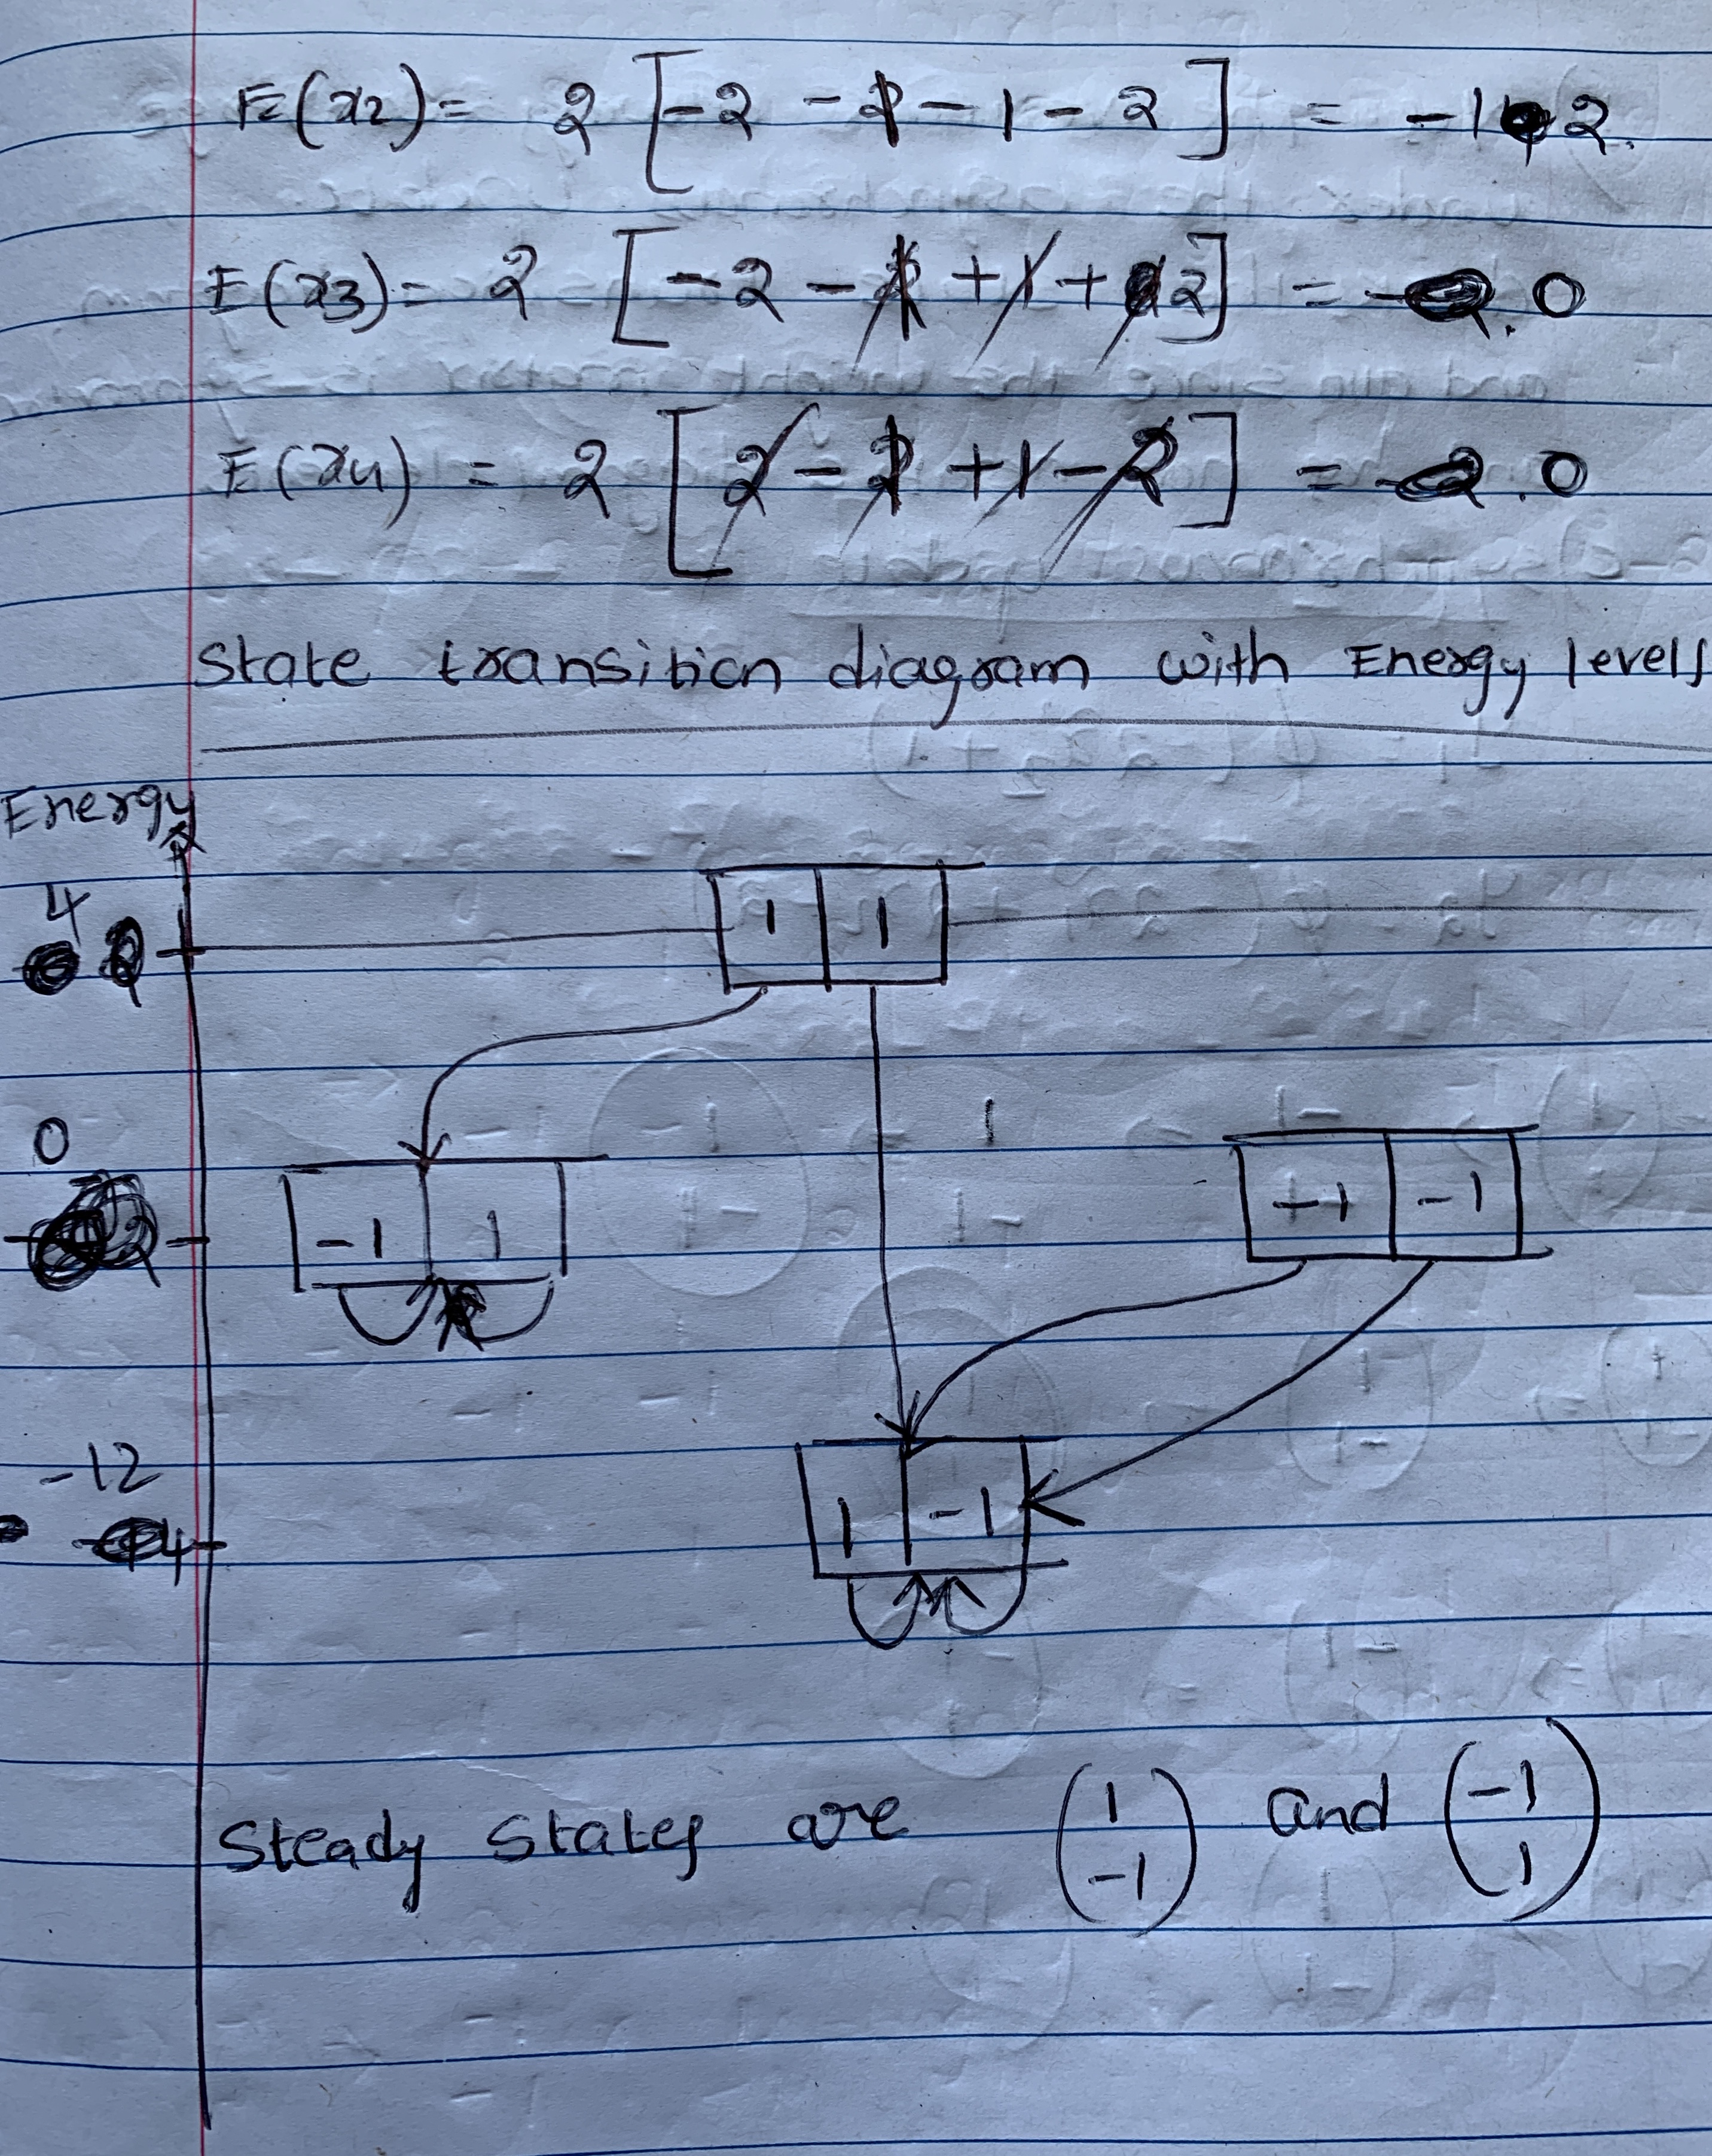 E(x2) = 2 [-2 - 1 - 1 - 2] = -12.
E(x3) = 2 [-2 - 1 + 1 + 2] = 0
E(x4) = 2 [2 - 1 + 1 - 2] = 0
State transition diagram with Energy levels
Energy
4
1 1
0
-1 1
-1 -1
-12
1 -1
Steady states are (1 -1) and (-1 1)